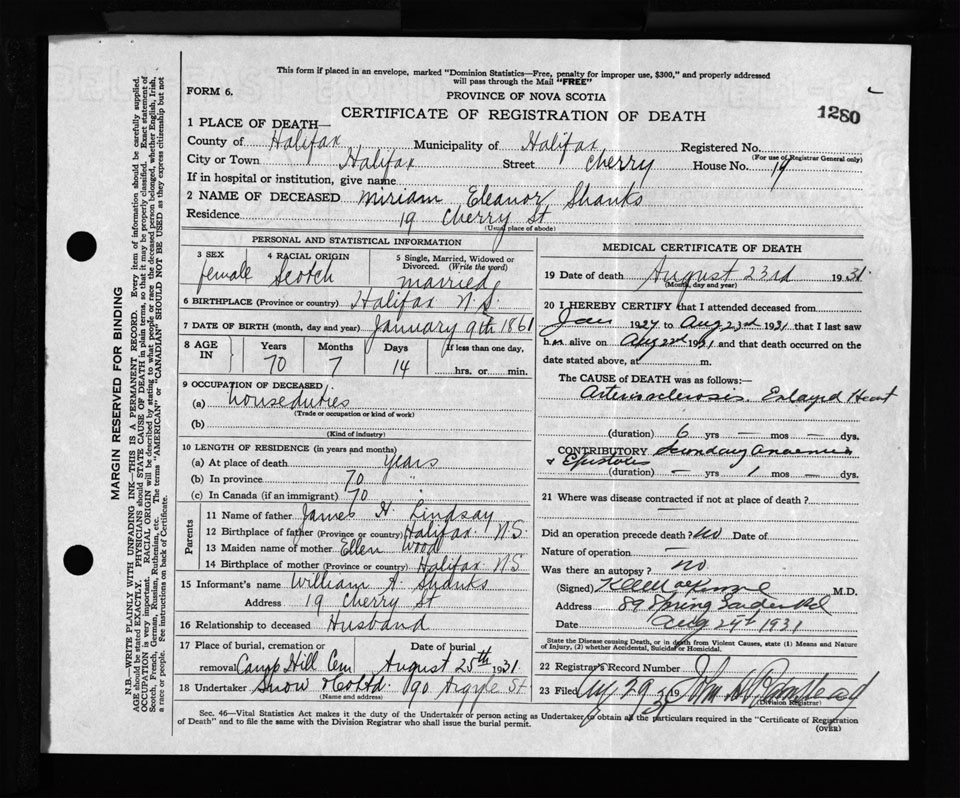 This form if placed in an envelope, marked "Dominion Statistics—Free, penalty for improper use, $300," and properly addressed
will pass through the Mail "FREE"
FORM 6.
PROVINCE OF NOVA SCOTIA
1280
CERTIFICATE OF REGISTRATION OF DEATH
1 PLACE OF DEATH—
County of Halifax Municipality of Halifax Registered No.
(For use of Registrar General only)
City or Town Halifax Street Cherry House No. 19
If in hospital or institution, give name
2 NAME OF DECEASED Miriam Eleanor Shanks
Residence 19 Cherry St
(Usual place of abode)
MARGIN RESERVED FOR BINDING
N.B.—WRITE PLAINLY WITH UNFADING INK—THIS IS A PERMANENT RECORD. Every item of information should be carefully supplied.
AGE should be stated EXACTLY. PHYSICIANS should STATE CAUSE OF DEATH in plain terms, so that it may be properly classified. Exact statement of
OCCUPATION is very important. RACIAL ORIGIN will be described by stating to what people or race the deceased person belonged, whether English, Irish,
Scotch, French, German, Russian, Ruthenian, etc. The terms "AMERICAN" or "CANADIAN" SHOULD NOT BE USED as they express citizenship but not
a race or people. See instructions on back of Certificate.
PERSONAL AND STATISTICAL INFORMATION
3 SEX
female
4 RACIAL ORIGIN
Scotch
5 Single, Married, Widowed or
Divorced. (Write the word)
married
6 BIRTHPLACE (Province or country) Halifax N.S.
7 DATE OF BIRTH (month, day and year) January 9th 1861
8 AGE IN
Years Months Days If less than one day,
70 7 14 hrs. or min.
9 OCCUPATION OF DECEASED
(a) Houseduties
(Trade or occupation or kind of work)
(b)
(Kind of industry)
10 LENGTH OF RESIDENCE (in years and months)
(a) At place of death years
(b) In province 70 "
(c) In Canada (if an immigrant) 70
Parents
11 Name of father James H. Lindsay
12 Birthplace of father (Province or country) Halifax N.S.
13 Maiden name of mother Ellen Wood
14 Birthplace of mother (Province or country) Halifax N.S
15 Informant's name William A. Shanks
Address 19 Cherry St
16 Relationship to deceased Husband
17 Place of burial, cremation or removal Camp Hill Cem
Date of burial August 25th 1931
18 Undertaker Snow & Co Ltd. 90 Argyle St
(Name and address)
MEDICAL CERTIFICATE OF DEATH
19 Date of death August 23rd 1931.
(Month, day and year)
20 I HEREBY CERTIFY that I attended deceased from
Jan 1927 to Aug 23rd 1931 that I last saw
her alive on Aug 22nd 1931 and that death occurred on the
date stated above, at m.
The CAUSE of DEATH was as follows:—
Arteriosclerosis. Enlarged Heart
(duration) 6 yrs — mos — dys.
CONTRIBUTORY Secondary anaemia
& Epistaxis
(duration) — yrs 1 mos — dys.
21 Where was disease contracted if not at place of death?
—
Did an operation precede death? No Date of
Nature of operation —
Was there an autopsy? No
(Signed) M.D.
Address 89 Spring Garden Rd
Date Aug 29th 1931
State the Disease causing Death, or in death from Violent Causes, state (1) Means and Nature
of Injury, (2) whether Accidental, Suicidal or Homicidal.
22 Registrar's Record Number
23 Filed Aug 29 1931
(Division Registrar)
Sec. 46—Vital Statistics Act makes it the duty of the Undertaker or person acting as Undertaker to obtain all the particulars required in the "Certificate of Registration
of Death" and to file the same with the Division Registrar who shall issue the burial permit.
(OVER)